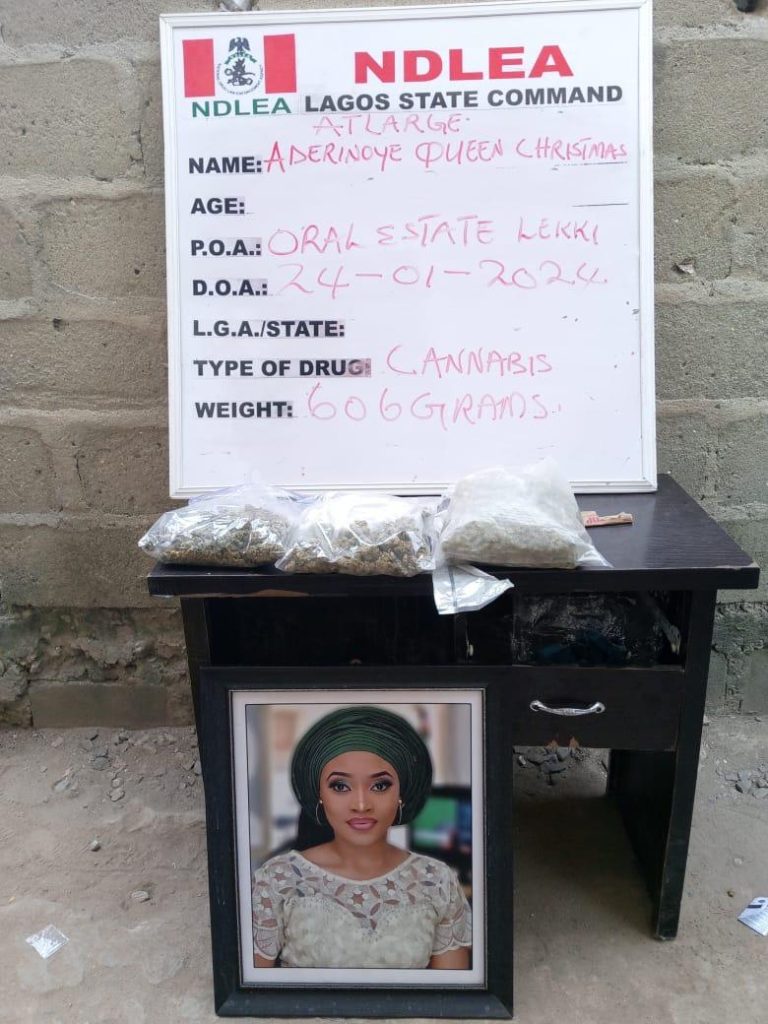 NDLEA
NDLEA LAGOS STATE COMMAND
ATLARGE
NAME: ADERINOYE QUEEN CHRISTMAS
AGE:
P.O.A.: ORAL ESTATE LEKKI
D.O.A.: 24-01-2024
L.G.A./STATE:
TYPE OF DRUG: CANNABIS
WEIGHT: 606GRAMS.